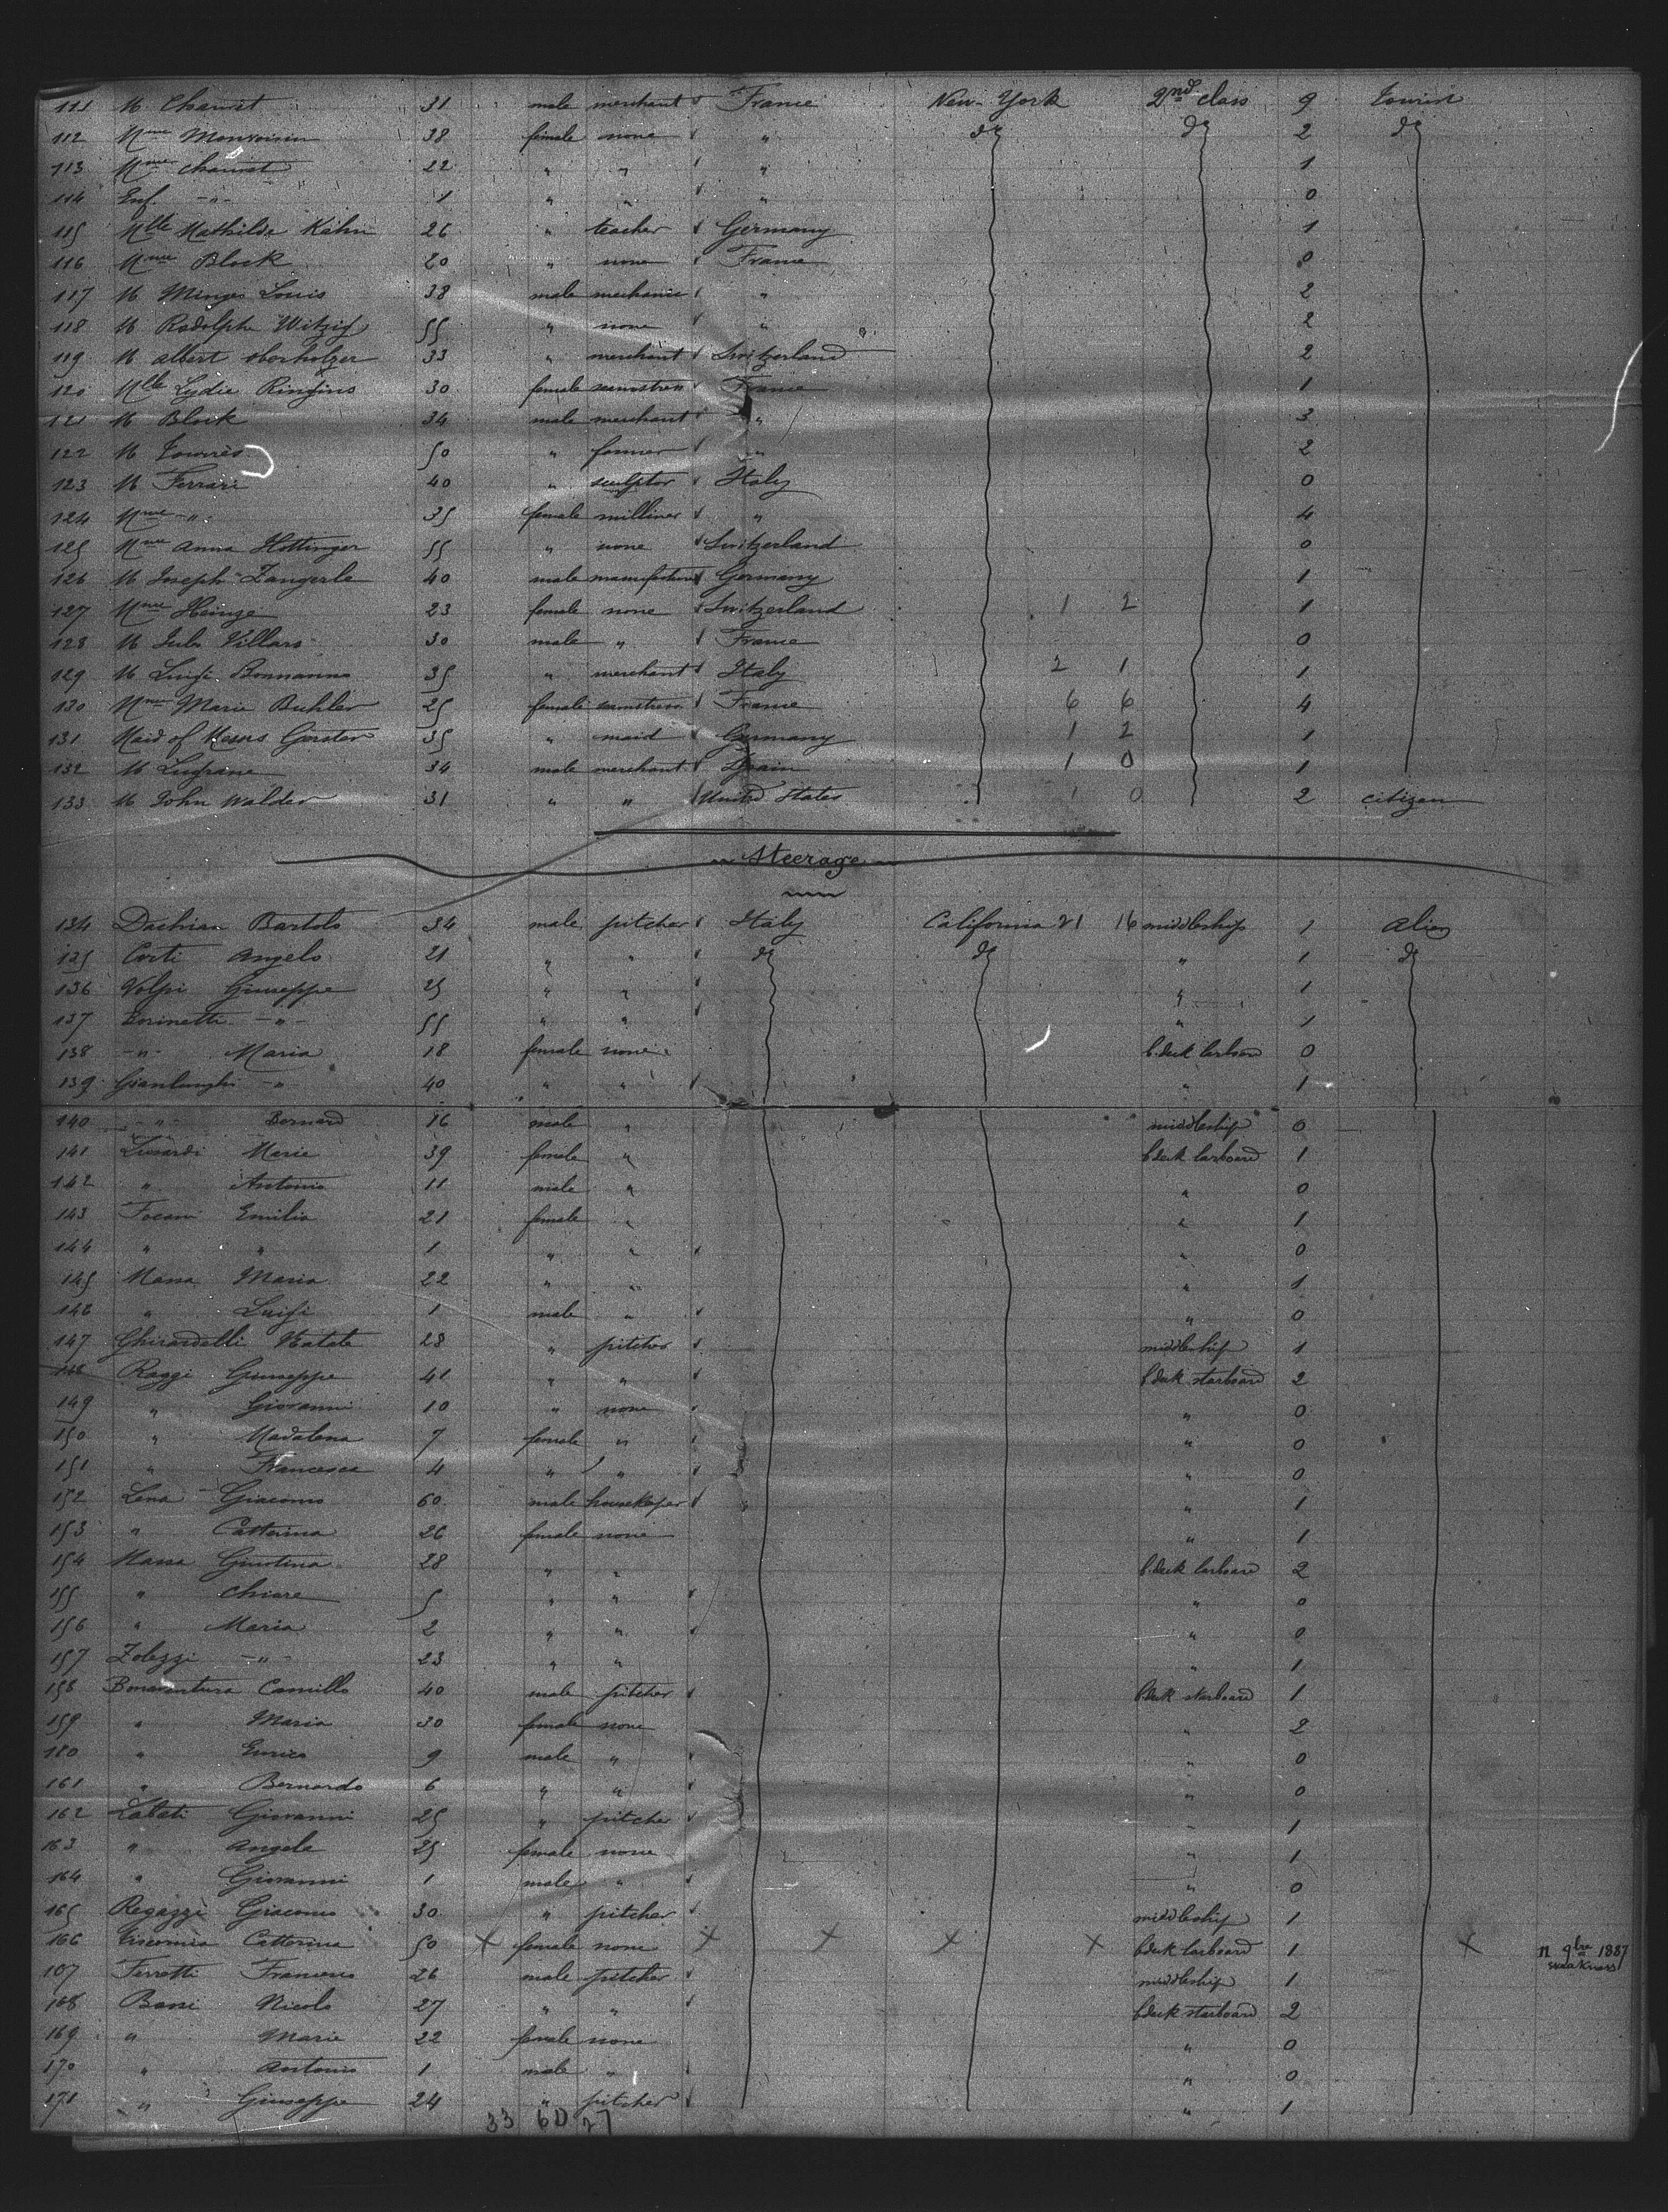 111 M Chauvet 31 male merchant France New-York 2nd class 9 tourist
112 Mme Monvoisin 38 female none " do do 2 do
113 Mme Chauvet 22 " " " 1
114 Enf. -"- 1 " " " 0
115 Mlle Mathilde Kahn 26 " teacher Germany 1
116 Mme Block 20 " none France 0
117 M Minges Louis 38 male mechanic " 2
118 M Rodolphe Witzig 55 " none " 2
119 M albert oberholzer 33 " merchant Switzerland 2
120 Mlle Lydie 30 female seamstress France 1
121 M Block 34 male merchant " 3
122 M 50 " farmer " 2
123 M Ferrari 40 " sculptor Italy 0
124 Mme -"- 35 female milliner " 4
125 Mme Anna Hottinger 55 " none Switzerland 0
126 M Joseph Zangerle 40 male manufacturer Germany 1
127 Mme Heinze 23 female none Switzerland 1 2 1
128 M Jules Villars 30 male " France 0
129 M Luigi Bonnanno 35 " merchant Italy 2 1 1
130 Mme Marie Buhler 25 female seamstress France 6 6 4
131 Maid of Messrs Gerster 35 " maid Germany 1 2 1
132 M 34 male merchant Spain 1 0 1
133 M John Walder 31 " " United States 1 0 2 citizen
Steerage
134 Bartolo 34 male pitcher Italy California 21 16 middleship 1 alien
135 Corti Angelo 21 " " do do " 1 do
136 Volpi Giuseppe 25 " " " 1
137 -"- 55 " " " 1
138 -"- Maria 18 female none b.deck larboard 0
139 -"- 40 " " " 1
140 -"- Bernard 16 male " middleship 0
141 Marie 39 female " b deck larboard 1
142 " Antonio 11 male " " 0
143 Emilia 21 female " " 1
144 " " 1 " " " 0
145 Massa Maria 22 " " " 1
146 " Luigi 1 male " " 0
147 Ghirardelli Natale 28 " pitcher middleship 1
148 Raggi Giuseppe 41 " " b deck starboard 2
149 " Giovanni 10 " none " 0
150 " Madalena 7 female " " 0
151 " Francesca 4 " " " 0
152 Lena Giacomo 60 male housekeeper " " 1
153 " Catterina 26 female none " 1
154 Massa Giustina 28 " " b.deck larboard 2
155 " Chiare 5 " " " 0
156 " Maria 2 " " " 0
157 Zolezzi -"- 23 " " " 1
158 Bonaventura Camillo 40 male pitcher b deck starboard 1
159 " Maria 30 female none " 2
160 " Enrico 9 male " " 0
161 " Bernardo 6 " " " 0
162 Labati Giovanni 25 " pitcher " 1
163 " Angela 25 female none " 1
164 " Giovanni 1 male " " 0
165 Regazzi Giacomo 30 " pitcher middleship 1
166 Catterina 50 x female none x x x x b deck larboard 1 x 11 9bre 1887
weakness
167 Ferretti Francesco 26 male pitcher middleship 1
168 Bassi Nicola 27 " " b deck starboard 2
169 " Marie 22 female none " 0
170 " Antonio 1 male " " 0
171 " Giuseppe 24 " pitcher " 1
33 60 27